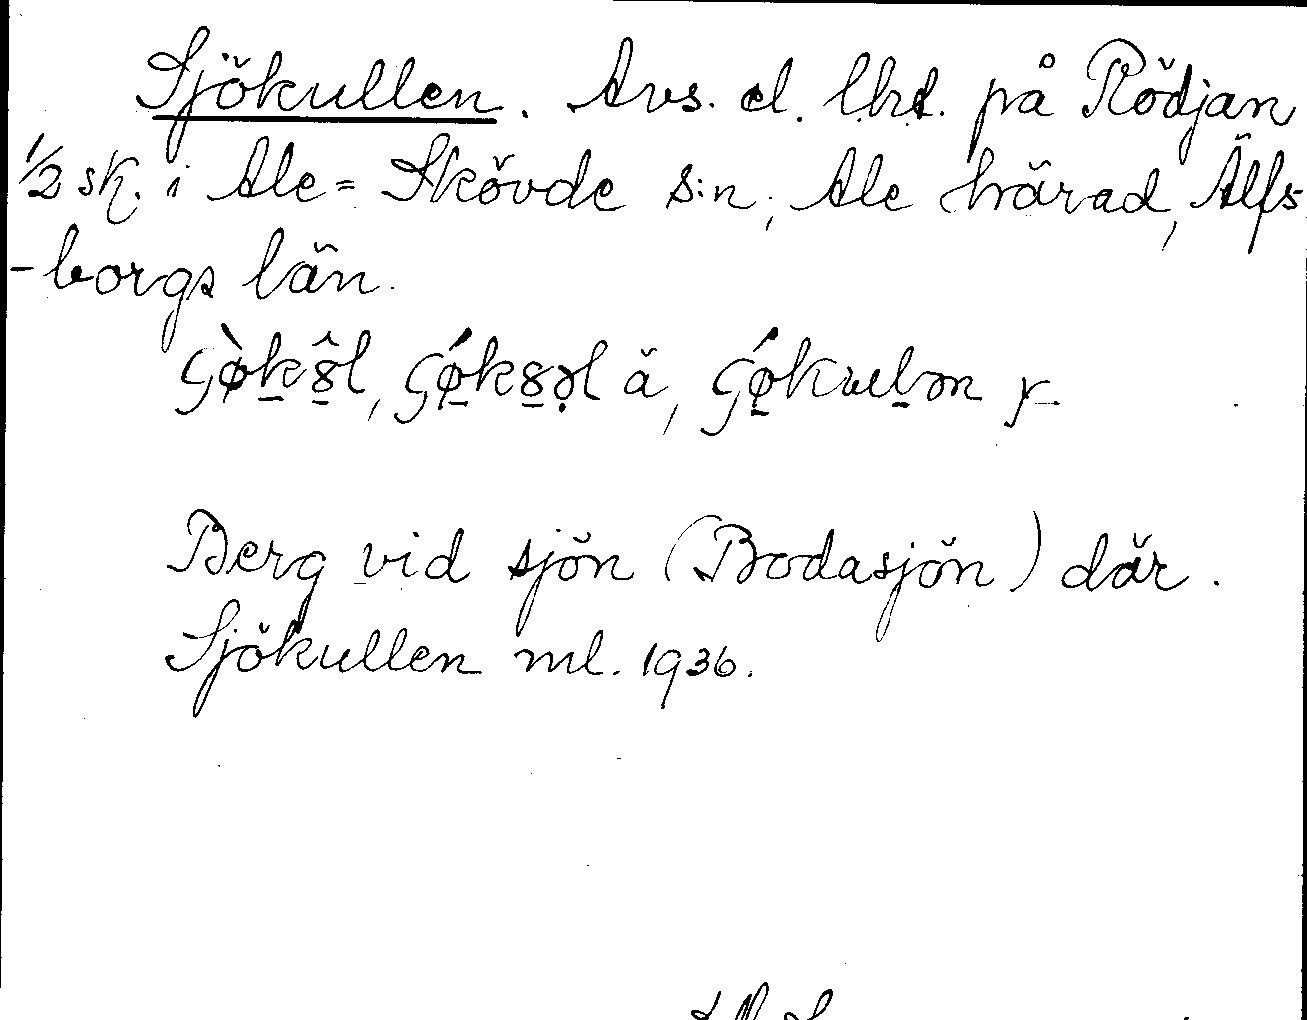 Sjökullen. Avs. el. lht. på Rödjan
1/2 sk. i Ale=Skövde s:n, Ale härad, Älfs-
-borgs län.
ä,
Berg vid sjön (Bodasjön) där.
Sjökullen ml. 1936.